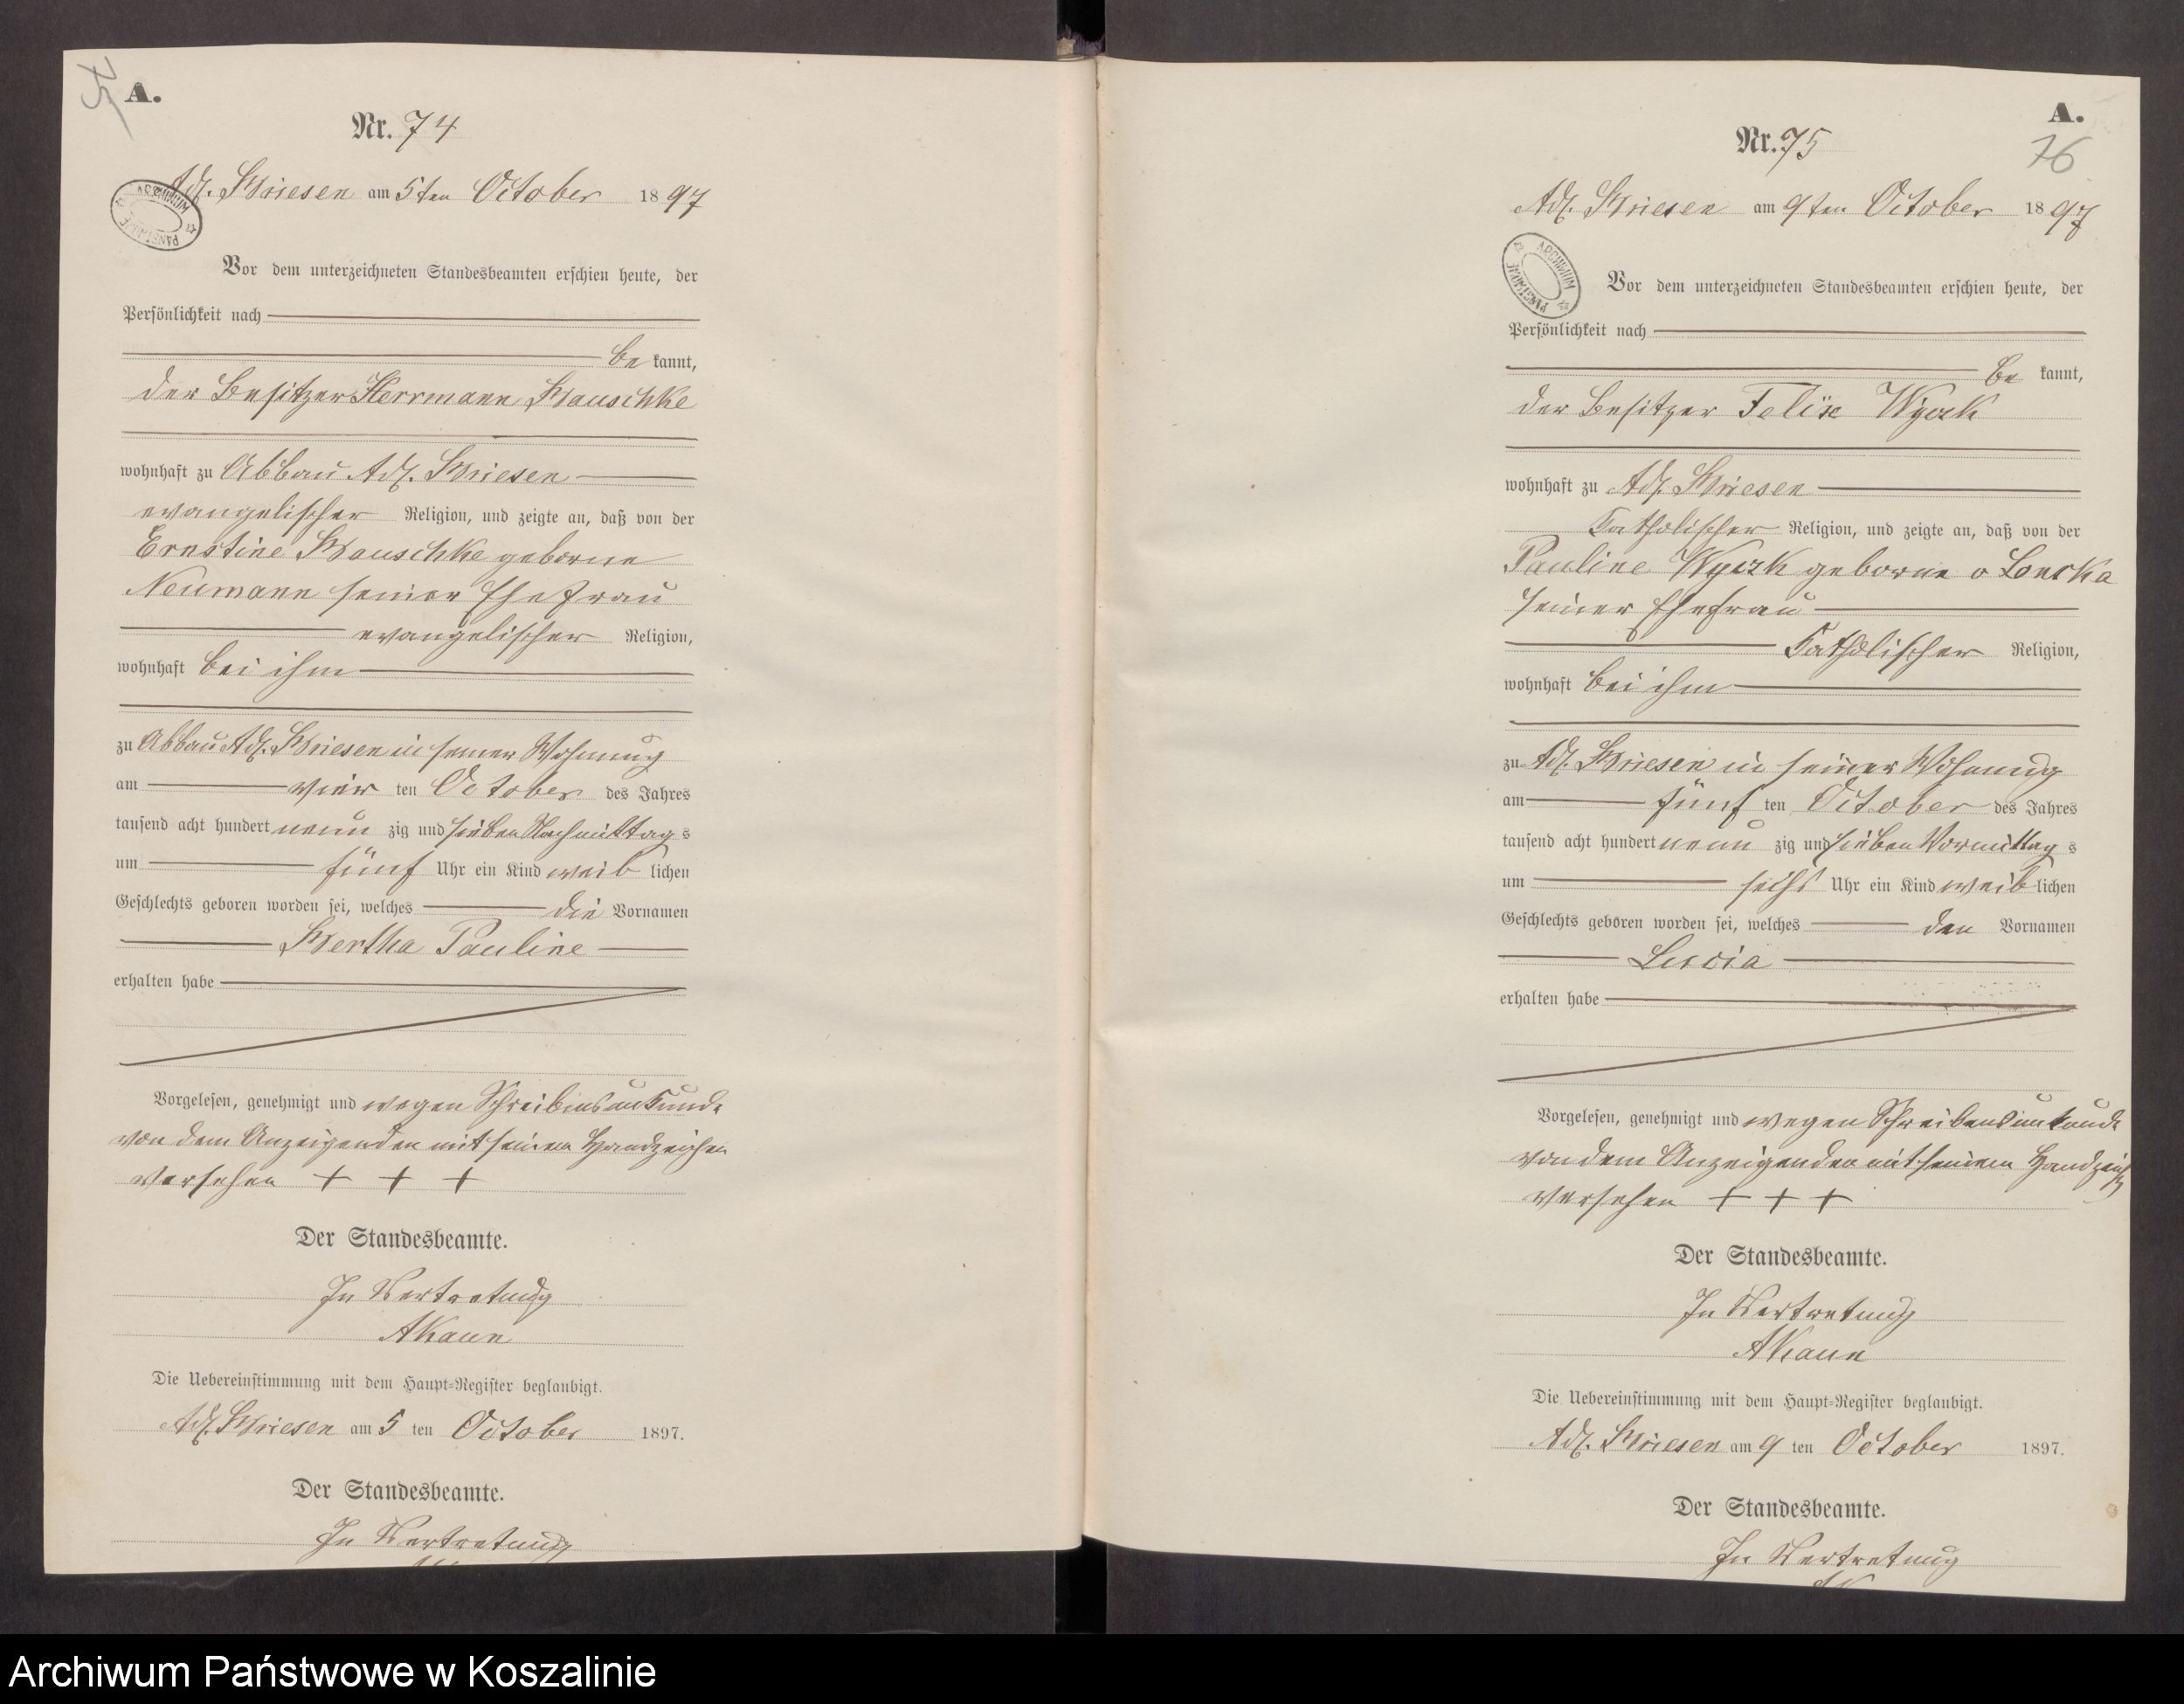 A.
Nr. 74
Adl. Briesen am 5ten October 1897
ARCHIWUM PAŃSTWOWE
Vor dem unterzeichneten Standesbeamten erschien heute, der
Persönlichkeit nach
be kannt,
der Besitzer Herrmann Bauschke
wohnhaft zu Abbau Adl. Briesen
evangelischer Religion, und zeigte an, daß von der
Ernstine Bauschke geborne
Neumann seiner Ehefrau
evangelischer Religion,
wohnhaft bei ihm
zu Abbau Adl. Briesen in seiner Wohnung
am vier ten October des Jahres
tausend acht hundert neun zig und sieben Nachmittag s
um fünf Uhr ein Kind weib lichen
Geschlechts geboren worden sei, welches die Vornamen
Bertha Pauline
erhalten habe
Vorgelesen, genehmigt und wegen Schreibensunkunde
von dem Anzeigenden mit seinem Handzeichen
versehen + + +
Der Standesbeamte.
In Vertretung
AKaun
Die Uebereinstimmung mit dem Haupt-Register beglaubigt.
Adl. Briesen am 5 ten October 1897.
Der Standesbeamte.
In Vertretung
A.
Nr. 75
76
Adl. Briesen am 9ten October 1897
ARCHIWUM PAŃSTWOWE
Vor dem unterzeichneten Standesbeamten erschien heute, der
Persönlichkeit nach
be kannt,
der Besitzer Felix
wohnhaft zu Adl. Briesen
Katholischer Religion, und zeigte an, daß von der
Pauline geborne
seiner Ehefrau
Katholischer Religion,
wohnhaft bei ihm
zu Adl. Briesen in seiner Wohnung
am fünf ten October des Jahres
tausend acht hundert neun zig und sieben Vormittag s
um sechs Uhr ein Kind weib lichen
Geschlechts geboren worden sei, welches den Vornamen
Lucia
erhalten habe
Vorgelesen, genehmigt und wegen Schreibensunkunde
von dem Anzeigenden mit seinem Handzeichen
versehen + + +
Der Standesbeamte.
In Vertretung
AKaun
Die Uebereinstimmung mit dem Haupt-Register beglaubigt.
Adl. Briesen am 9 ten October 1897.
Der Standesbeamte.
In Vertretung
Archiwum Państwowe w Koszalinie